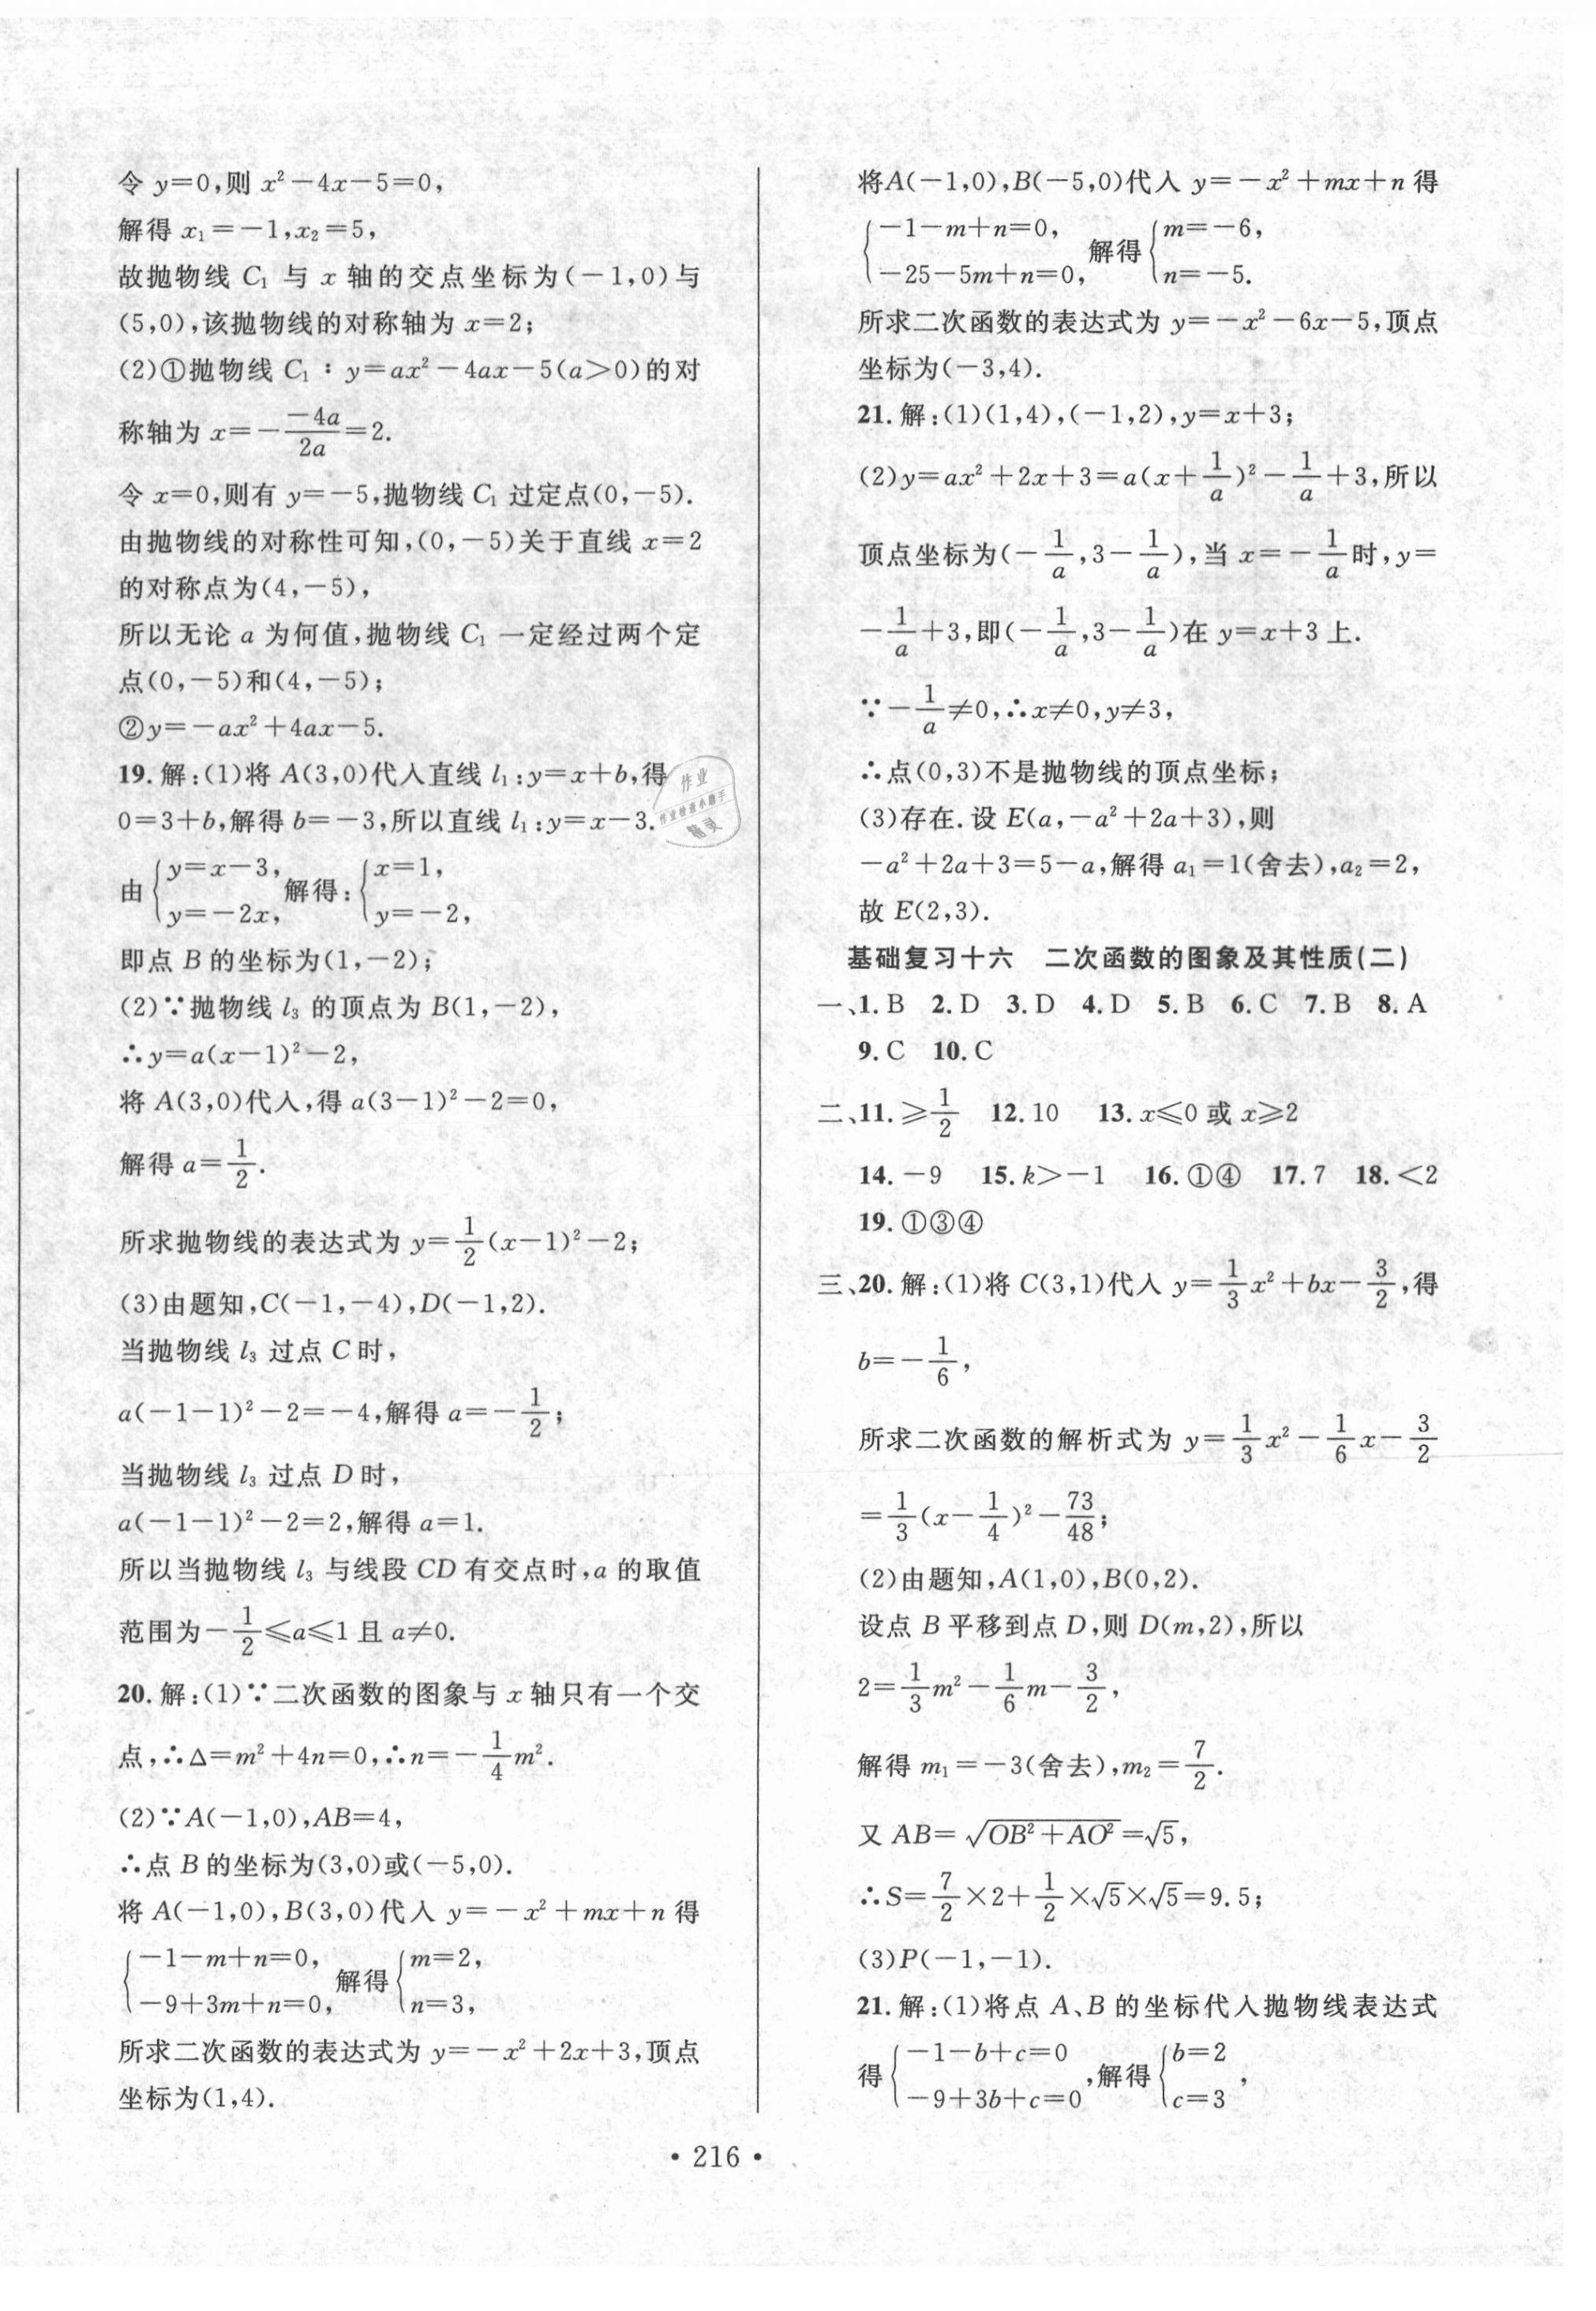 令 y=0,则 x²-4x-5=0,
解得 x₁=-1,x₂=5,
故抛物线 C₁ 与 x 轴的交点坐标为(-1,0)与
(5,0),该抛物线的对称轴为 x=2;
(2)①抛物线 C₁:y=ax²-4ax-5(a>0)的对
称轴为 x=-\frac{-4a}{2a}=2.
令 x=0,则有 y=-5,抛物线 C₁ 过定点(0,-5).
由抛物线的对称性可知,(0,-5)关于直线 x=2
的对称点为(4,-5),
所以无论 a 为何值,抛物线 C₁ 一定经过两个定
点(0,-5)和(4,-5);
②y=-ax²+4ax-5.
19.解:(1)将 A(3,0)代入直线 l₁:y=x+b,得
0=3+b,解得 b=-3,所以直线 l₁:y=x-3.
由{y=x-3, y=-2x, 解得:{x=1, y=-2,
即点 B 的坐标为(1,-2);
(2)∵抛物线 l₃ 的顶点为 B(1,-2),
∴y=a(x-1)²-2,
将 A(3,0)代入,得 a(3-1)²-2=0,
解得 a=\frac{1}{2}.
所求抛物线的表达式为 y=\frac{1}{2}(x-1)²-2;
(3)由题知,C(-1,-4),D(-1,2).
当抛物线 l₃ 过点 C 时,
a(-1-1)²-2=-4,解得 a=-\frac{1}{2};
当抛物线 l₃ 过点 D 时,
a(-1-1)²-2=2,解得 a=1.
所以当抛物线 l₃ 与线段 CD 有交点时,a 的取值
范围为-\frac{1}{2}≤a≤1 且 a≠0.
20.解:(1)∵二次函数的图象与 x 轴只有一个交
点,∴Δ=m²+4n=0,∴n=-\frac{1}{4}m².
(2)∵A(-1,0),AB=4,
∴点 B 的坐标为(3,0)或(-5,0).
将 A(-1,0),B(3,0)代入 y=-x²+mx+n 得
{-1-m+n=0, -9+3m+n=0, 解得{m=2, n=3,
所求二次函数的表达式为 y=-x²+2x+3,顶点
坐标为(1,4).
将A(-1,0),B(-5,0)代入 y=-x²+mx+n 得
{-1-m+n=0, -25-5m+n=0, 解得{m=-6, n=-5.
所求二次函数的表达式为 y=-x²-6x-5,顶点
坐标为(-3,4).
21.解:(1)(1,4),(-1,2),y=x+3;
(2)y=ax²+2x+3=a(x+\frac{1}{a})²-\frac{1}{a}+3,所以
顶点坐标为(-\frac{1}{a},3-\frac{1}{a}),当 x=-\frac{1}{a}时,y=
-\frac{1}{a}+3,即(-\frac{1}{a},3-\frac{1}{a})在 y=x+3 上.
∵-\frac{1}{a}≠0,∴x≠0,y≠3,
∴点(0,3)不是抛物线的顶点坐标;
(3)存在.设 E(a,-a²+2a+3),则
-a²+2a+3=5-a,解得 a₁=1(舍去),a₂=2,
故 E(2,3).
基础复习十六 二次函数的图象及其性质(二)
一、1.B 2.D 3.D 4.D 5.B 6.C 7.B 8.A
9.C 10.C
二、11.≥\frac{1}{2} 12.10 13.x≤0 或 x≥2
14.-9 15.k>-1 16.①④ 17.7 18.<2
19.①③④
三、20.解:(1)将 C(3,1)代入 y=\frac{1}{3}x²+bx-\frac{3}{2},得
b=-\frac{1}{6},
所求二次函数的解析式为 y=\frac{1}{3}x²-\frac{1}{6}x-\frac{3}{2}
=\frac{1}{3}(x-\frac{1}{4})²-\frac{73}{48};
(2)由题知,A(1,0),B(0,2).
设点 B 平移到点 D,则 D(m,2),所以
2=\frac{1}{3}m²-\frac{1}{6}m-\frac{3}{2},
解得 m₁=-3(舍去),m₂=\frac{7}{2}.
又 AB=√(OB²+AO²)=√5,
∴S=\frac{7}{2}×2+\frac{1}{2}×√5×√5=9.5;
(3)P(-1,-1).
21.解:(1)将点 A、B 的坐标代入抛物线表达式
得{-1-b+c=0 -9+3b+c=0,解得{b=2 c=3,
·216·
作业
作业检查小助手
精灵